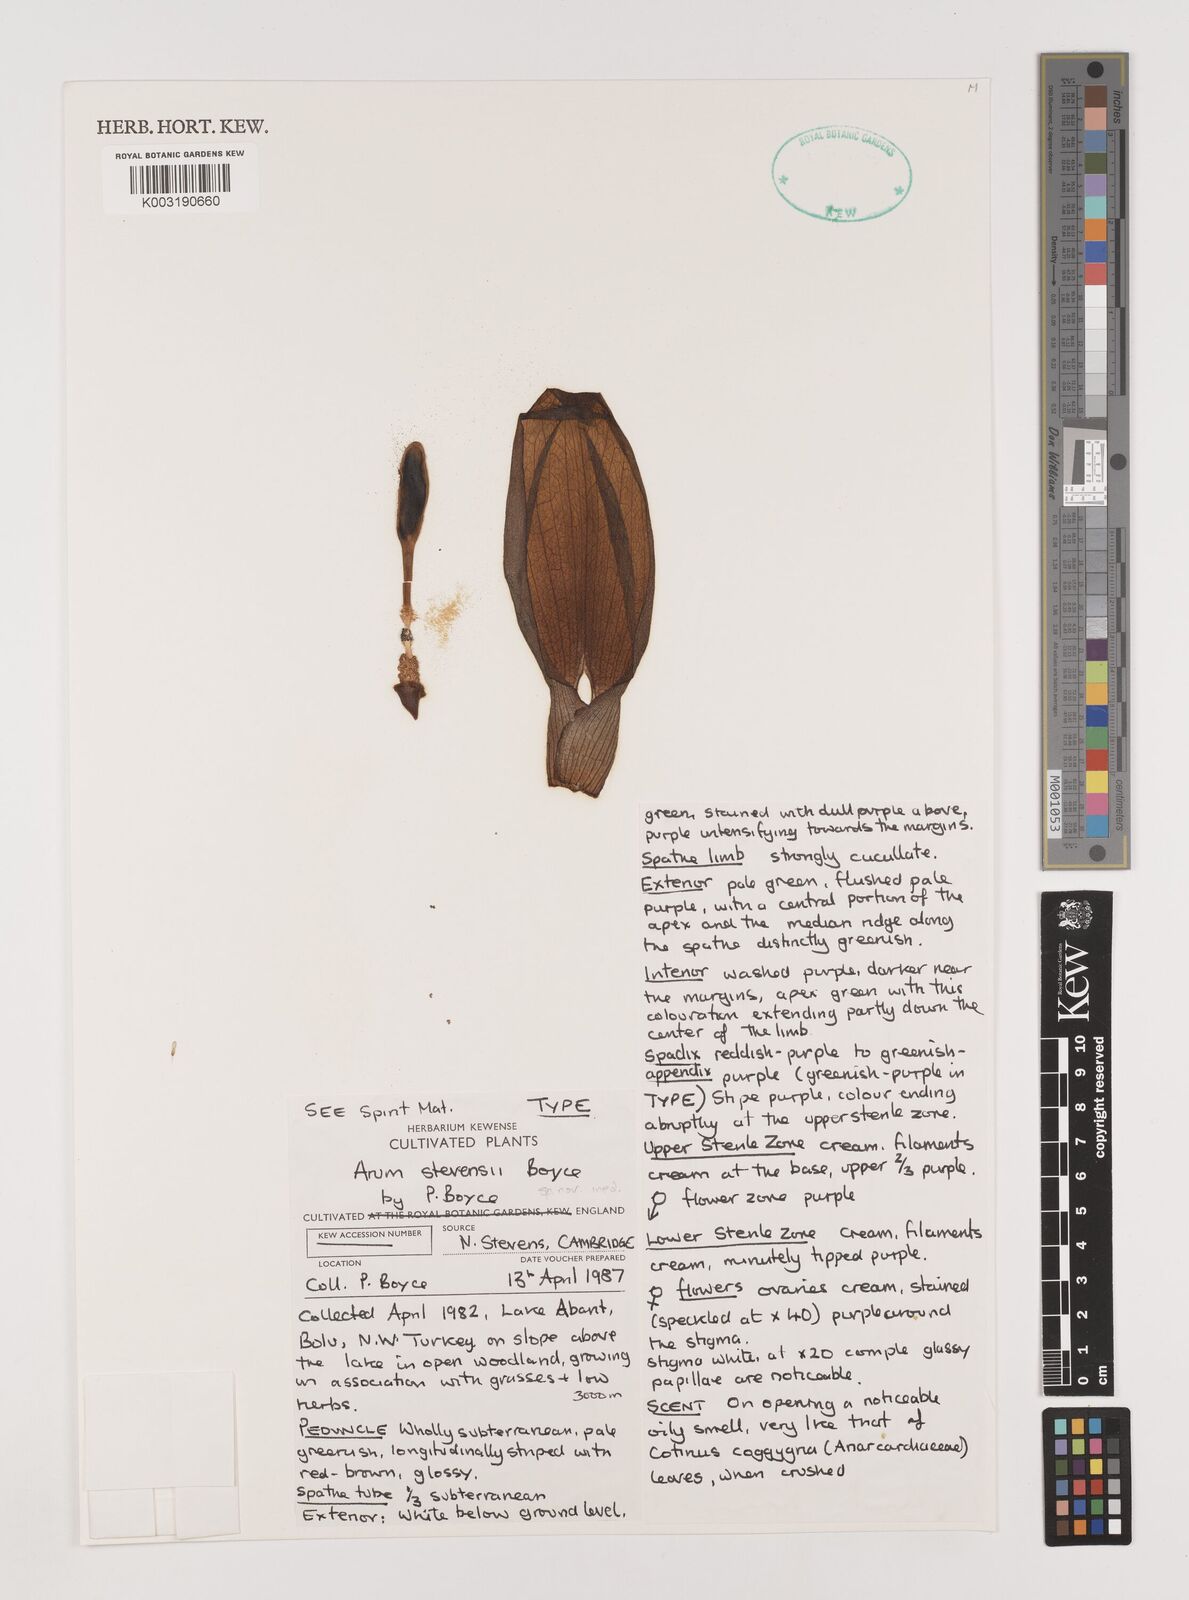 M
HERB. HORT. KEW.
ROYAL BOTANIC GARDENS KEW
K003190660
ROYAL BOTANIC GARDENS
KEW
SEE Spirit Mat. TYPE
HERBARIUM KEWENSE
CULTIVATED PLANTS
Arum stevensii Boyce
by P. Boyce sp. nov. ined.
CULTIVATED AT THE ROYAL BOTANIC GARDENS, KEW, ENGLAND
KEW ACCESSION NUMBER
SOURCE
N. Stevens, CAMBRIDGE
LOCATION
DATE VOUCHER PREPARED
Coll. P. Boyce 13th April 1987
Collected April 1982, Lake Abant,
Bolu, N.W. Turkey on slope above
the lake in open woodland, growing
in association with grasses + low
herbs. 3000m
PEDUNCLE Wholly subterranean, pale
greenish, longitudinally striped with
red-brown, glossy.
Spathe tube 1/3 subterranean
Exterior: White below ground level,
green, stained with dull purple above,
purple intensifying towards the margins.
Spathe limb strongly cucullate.
Exterior pale green, flushed pale
purple, with a central portion of the
apex and the median ridge along
the spathe distinctly greenish.
Interior washed purple, darker near
the margins, apex green with this
colouration extending partly down the
center of the limb
Spadix reddish-purple to greenish-
appendix purple (greenish-purple in
TYPE) Stipe purple, colour ending
abruptly at the upper sterile zone.
Upper Sterile Zone cream. filaments
cream at the base, upper 2/3 purple.
♂ flower zone purple
Lower Sterile Zone cream, filaments
cream, minutely tipped purple.
♀ flowers ovaries cream, stained
(speckled at x 40) purple around
the stigma.
stigma white, at x20 comple glassy
papillae are noticeable.
SCENT On opening a noticeable
oily smell, very like that of
Cotinus coggygria (Anarcardiaceae)
leaves, when crushed
inches
centimeters
Density
Don Williams
M001053
Kew
Royal Botanic Gardens
copyright reserved
0 1 2 3 4 5 6 7 8 9 10
cm